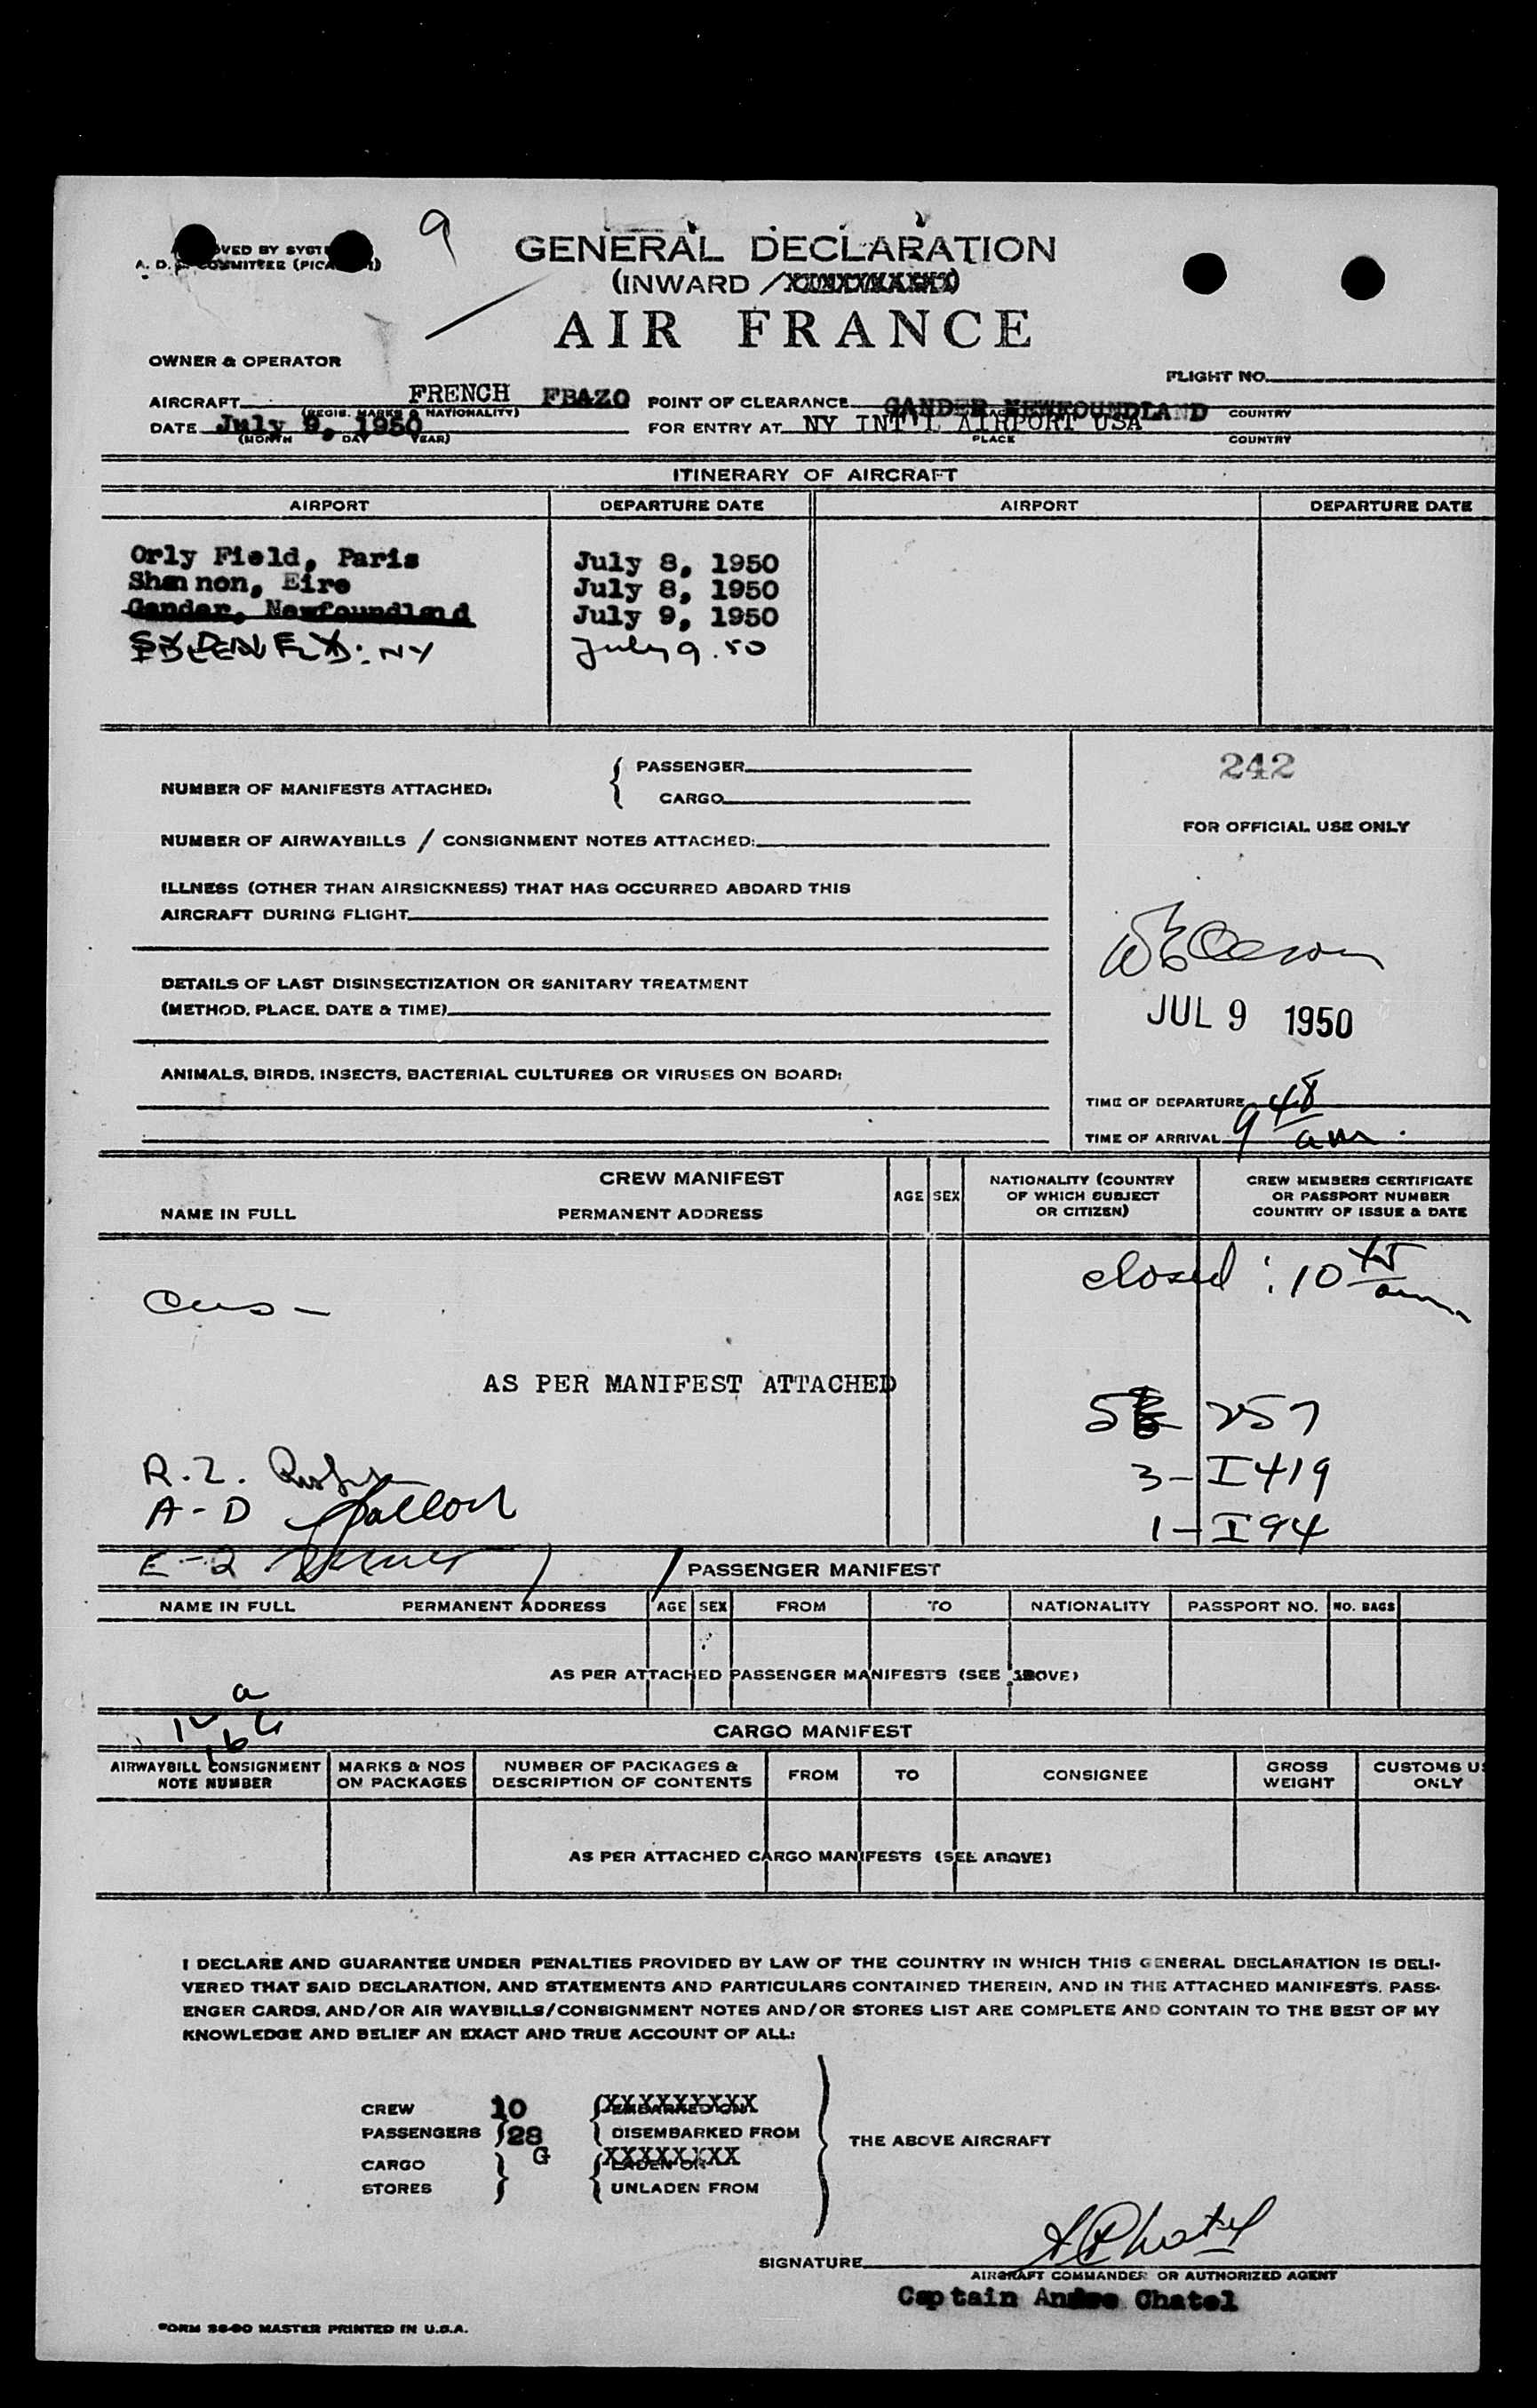 9
GENERAL DECLARATION
(INWARD /
AIR FRANCE
OWNER & OPERATOR
FLIGHT NO.
AIRCRAFT FRENCH FBAZO POINT OF CLEARANCE GANDER NEWFOUNDLAND COUNTRY
(REGIS. MARKS & NATIONALITY)
DATE July 9, 1950 FOR ENTRY AT NY INT'L AIRPORT USA
(MONTH DAY YEAR) PLACE COUNTRY
ITINERARY OF AIRCRAFT
AIRPORT DEPARTURE DATE AIRPORT DEPARTURE DATE
Orly Field, Paris July 8, 1950
Shannon, Eire July 8, 1950
Gander, Newfoundland July 9, 1950
NY July 9. 50
242
PASSENGER
NUMBER OF MANIFESTS ATTACHED:
CARGO
FOR OFFICIAL USE ONLY
NUMBER OF AIRWAYBILLS / CONSIGNMENT NOTES ATTACHED:
ILLNESS (OTHER THAN AIRSICKNESS) THAT HAS OCCURRED ABOARD THIS
AIRCRAFT DURING FLIGHT
DETAILS OF LAST DISINSECTIZATION OR SANITARY TREATMENT
(METHOD, PLACE, DATE & TIME)
JUL 9 1950
ANIMALS, BIRDS, INSECTS, BACTERIAL CULTURES OR VIRUSES ON BOARD:
TIME OF DEPARTURE
TIME OF ARRIVAL 9 48 am.
CREW MANIFEST
NAME IN FULL PERMANENT ADDRESS AGE SEX NATIONALITY (COUNTRY OF WHICH SUBJECT OR CITIZEN) CREW MEMBERS CERTIFICATE OR PASSPORT NUMBER COUNTRY OF ISSUE & DATE
closed : 10 45 am
AS PER MANIFEST ATTACHED
257
3 - I 419
R.Z.
A-D
1 - I 94
E-2
PASSENGER MANIFEST
NAME IN FULL PERMANENT ADDRESS AGE SEX FROM TO NATIONALITY PASSPORT NO. NO. BAGS
AS PER ATTACHED PASSENGER MANIFESTS (SEE ABOVE)
CARGO MANIFEST
AIRWAYBILL CONSIGNMENT NOTE NUMBER MARKS & NOS ON PACKAGES NUMBER OF PACKAGES & DESCRIPTION OF CONTENTS FROM TO CONSIGNEE GROSS WEIGHT CUSTOMS US ONLY
AS PER ATTACHED CARGO MANIFESTS (SEE ABOVE)
I DECLARE AND GUARANTEE UNDER PENALTIES PROVIDED BY LAW OF THE COUNTRY IN WHICH THIS GENERAL DECLARATION IS DELI-
VERED THAT SAID DECLARATION, AND STATEMENTS AND PARTICULARS CONTAINED THEREIN, AND IN THE ATTACHED MANIFESTS, PASS-
ENGER CARDS, AND/OR AIR WAYBILLS/CONSIGNMENT NOTES AND/OR STORES LIST ARE COMPLETE AND CONTAIN TO THE BEST OF MY
KNOWLEDGE AND BELIEF AN EXACT AND TRUE ACCOUNT OF ALL:
CREW 10 XXXXXXXXX
PASSENGERS 28 DISEMBARKED FROM
THE ABOVE AIRCRAFT
CARGO G XXXXXXXX
STORES UNLADEN FROM
SIGNATURE A Chatel
AIRCRAFT COMMANDER OR AUTHORIZED AGENT
Captain Andre Chatel
FORM 36-90 MASTER PRINTED IN U.S.A.